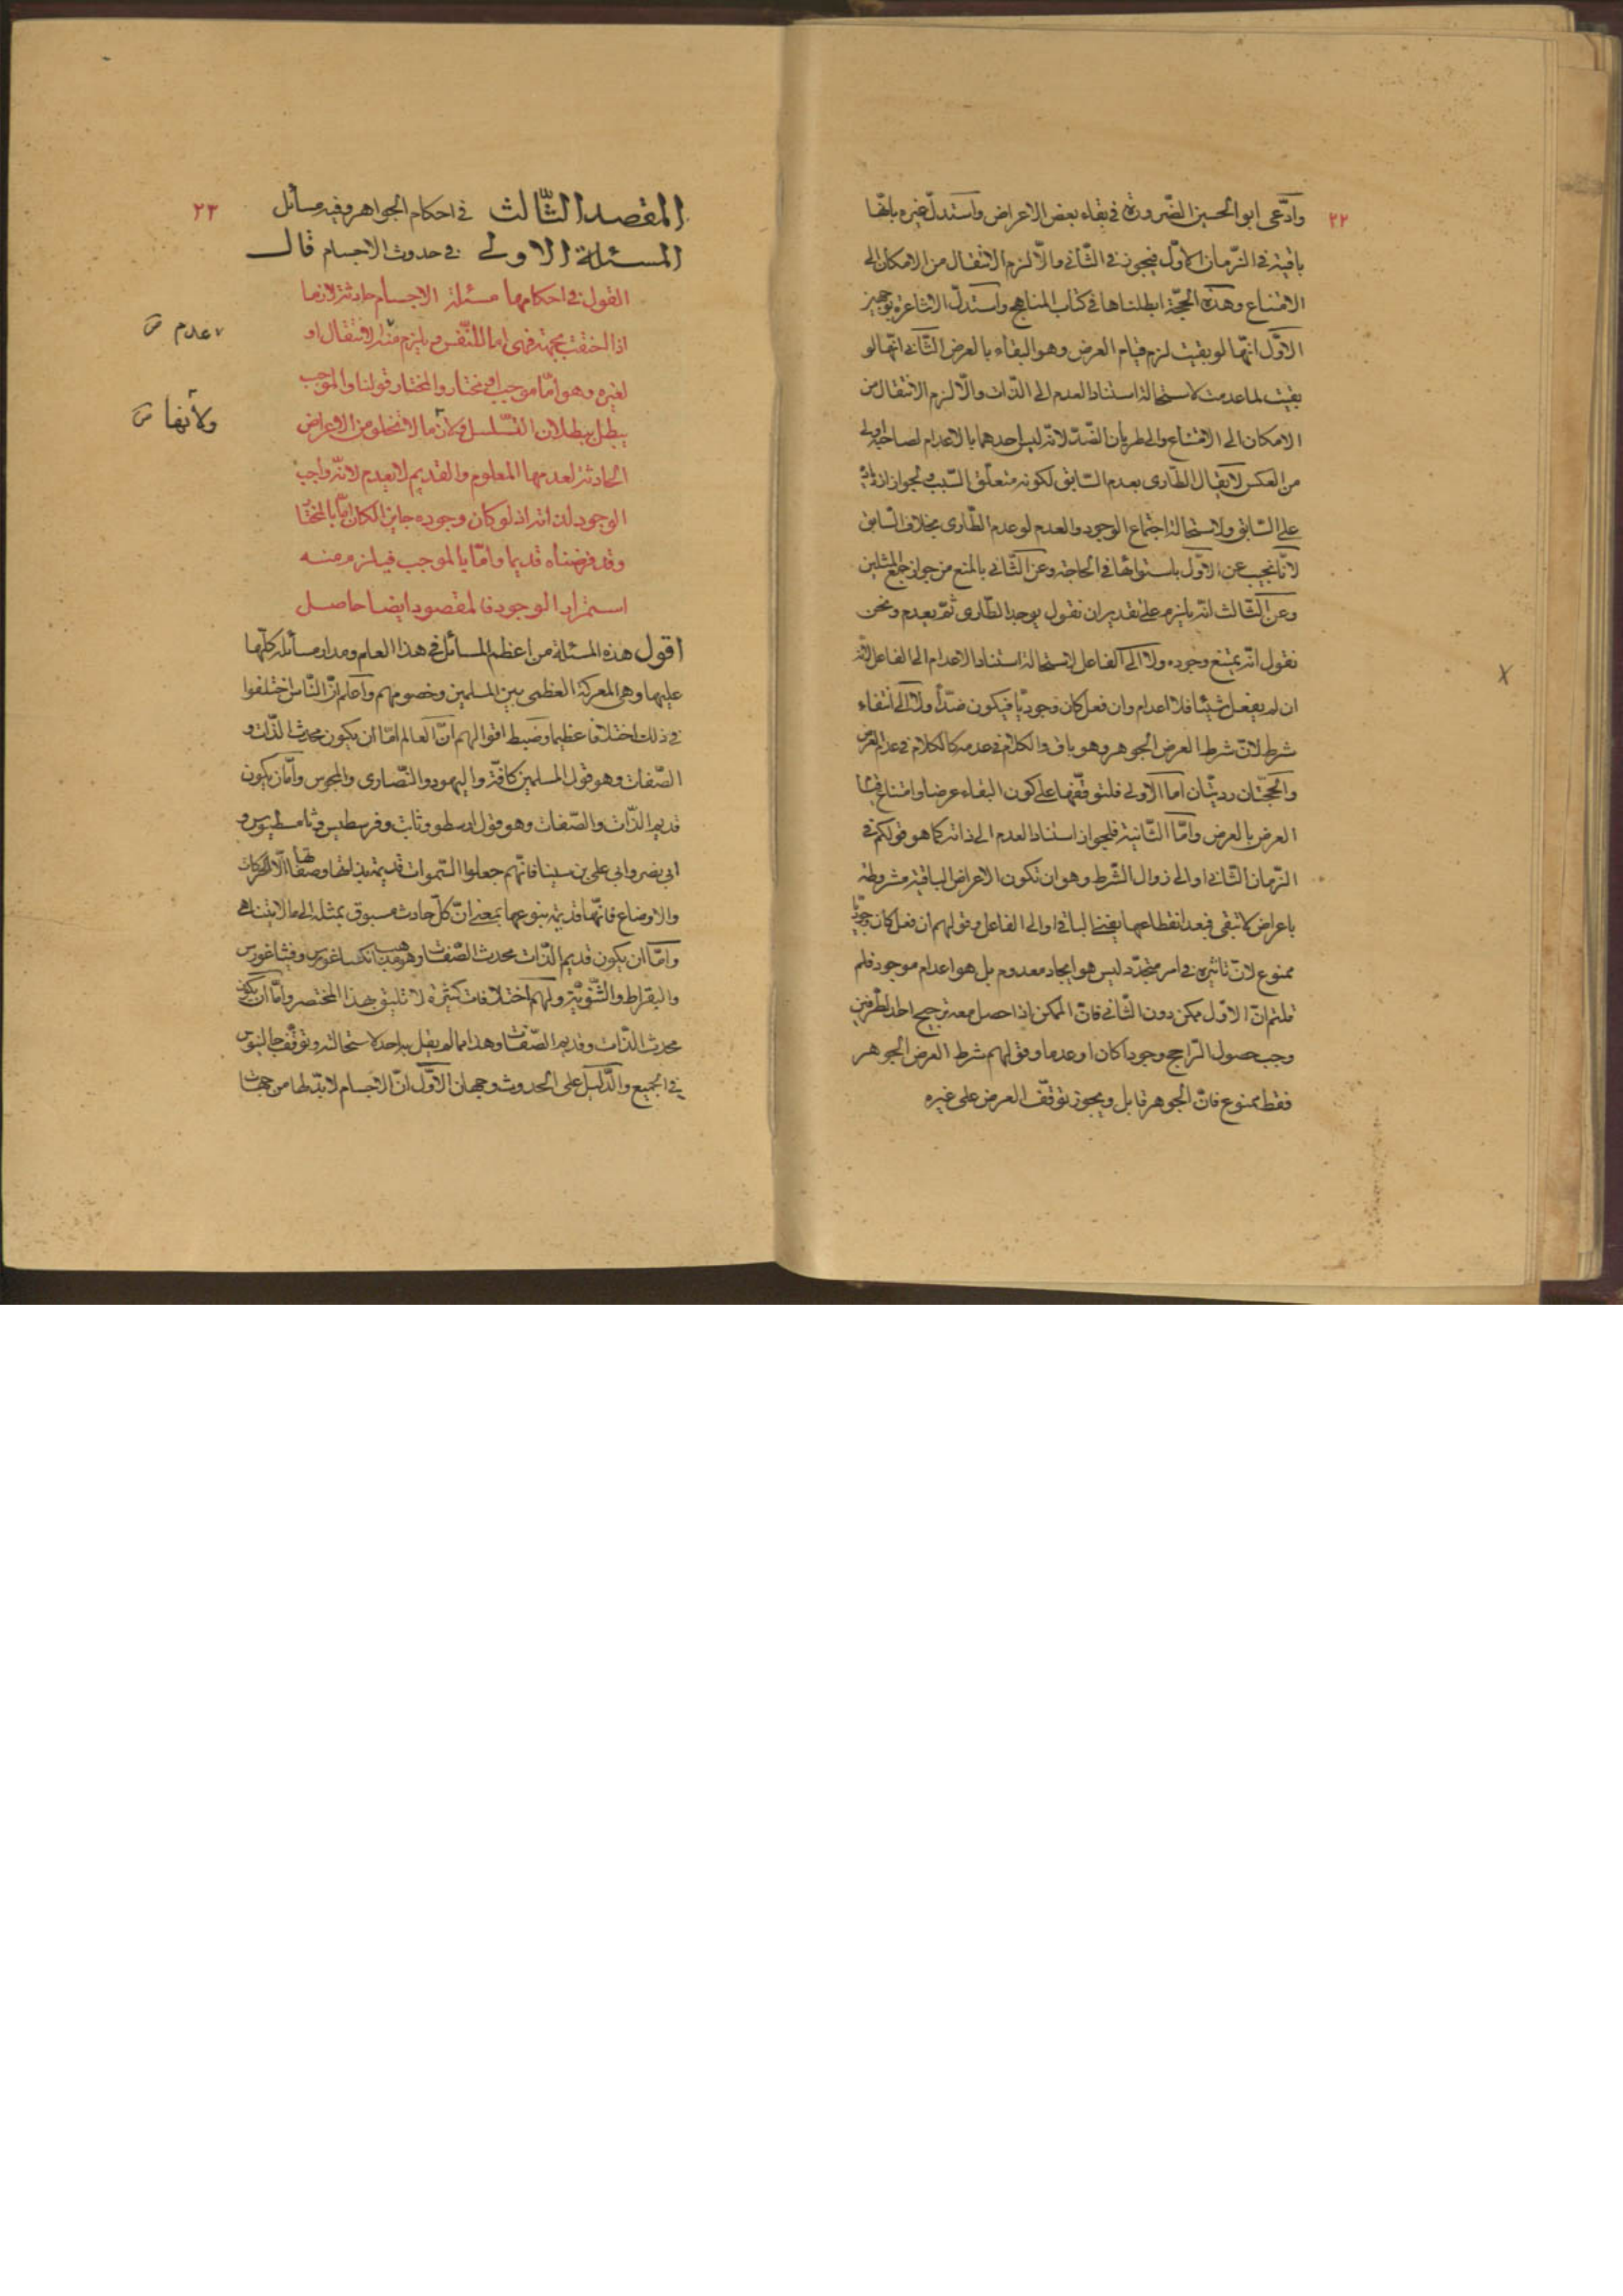 ٢٢
وادّعى ابو الحسين الضّرورة في بقاء بعض الاعراض واستدلّ غيره بانّها
باقية في الزّمان الاوّل فيجوز في الثّاني والّا لزم الانتقال من الامكان الى
الامتناع وهذه الحجّة ابطلناها في كتاب المناهج واستدلّ الاشاعرة بوجهين
الاوّل انّها لو بقيت لزم قيام العرض وهو البقاء بالعرض الثّاني انّها لو
بقيت لما عدمت لاستحالة استناد العدم الى الذّات والّا لزم الانتقال من
الامكان الى الامتناع والى طريان الضّدّ لانّه ليس احدهما بالاعدام لصاحبه اولى
من العكس لا يقال الطّارى يعدم السّابق لكونه متعلّق السّبب ولجواز ازدياده
على السّابق ولاستحالة اجتماع الوجود والعدم لو عدم الطّارى بخلاف السّابق
لانّا نجيب عن الاوّل باستوائها في الحاجة وعن الثّاني بالمنع من جواز جمع المثلين
وعن الثّالث انّه يلزم على تقدير ان نقول يوجد الطّارى ثمّ يعدم ونحن
نقول انّه يمتنع وجوده ولا الى الفاعل لاستحالة استناد الاعدام الى الفاعل لانّه
ان لم يفعل شيئا فلا اعدام وان فعل كان وجوديّا فيكون ضدّا ولا الى انتفاء
شرط لانّ شرط العرض الجوهر وهو باق والكلام في عدمه كالكلام في عدم العرض
والحجّتان رديّتان امّا الاولى فلتوقّفها على كون البقاء عرضا وامتناع قيام
العرض بالعرض وامّا الثّانية فلجواز استناد العدم الى ذاته كما هو قولكم في
الزّمان الثّاني او الى زوال الشّرط وهو ان تكون الاعراض الباقية مشروطة
باعراض لا تبقى فبعد انقطاعها يفنى الباقي او الى الفاعل وقولهم ان فعل كان وجوديّا
ممنوع لانّ تاثيره في امر متجدّد ليس هو ايجاد معدوم بل هو اعدام موجود فلم
قلتم انّ الاوّل ممكن دون الثّاني فانّ الممكن اذا حصل معه ترجيح احد الطّرفين
وجب حصول الرّاجح وجودا كان او عدما وقولهم شرط العرض الجوهر
فقط ممنوع فانّ الجوهر قابل ويجوز توقّف العرض على غيره
٢٣
المقصد الثّالث في احكام الجواهر وفيه مسائل
المسئلة الاولى في حدوث الاجسام قال
القول في احكامها مسئلة الاجسام حادثة لانها
اذا اختصّت بجهة فهي امّا للنّفس ويلزم منه الانتقال او
عدم
لغيره وهو امّا موجب او مختار والمختار قولنا والموجب
يبطل ببطلان التّسلسل ولانّ ما لا تخلو من الاعراض
ولأنها
الحادثة لعدمها المعلوم والقديم لا يعدم لانّه واجب
الوجود لذاته اذ لو كان وجوده جايزا لكان امّا بالمختار
وقد فرضناه قديما وامّا بالموجب فيلزم منه
استمرار الوجود فالمقصود ايضا حاصل
اقول هذه المسئلة من اعظم المسائل في هذا العلم ومدار مسائله كلّها
عليها وهي المعركة العظمى بين المسلمين وخصومهم واعلم انّ النّاس اختلفوا
في ذلك اختلافا عظيما وضبط اقوالهم انّ العالم امّا ان يكون محدث الذّات و
الصّفات وهو قول المسلمين كافّة واليهود والنّصارى والمجوس وامّا ان يكون
قديم الذّات والصّفات وهو قول ارسطو وثابت وفرسطيس وثامسطيوس و
ابي نصر وابي علي بن سينا فانّهم جعلوا السّموات قديمة بذاتها وصفاتها الّا الحركات
والاوضاع فانّها قديمة بنوعها بمعنى انّ كلّ حادث مسبوق بمثله الى ما لا يتناهى
وامّا ان يكون قديم الذّات محدث الصّفات وهو مذهب انكساغورس وفيثاغورس
والبقراط والثّنويّة ولهم اختلافات كثيرة لا تليق بهذا المختصر وامّا ان يكون
محدث الذّات وقديم الصّفات وهذا ممّا لم يقل به احد لاستحالته وتوقّف جالينوس
في الجميع والدّليل على الحدوث وجهان الاوّل انّ الاجسام لا بدّ لها من جهات